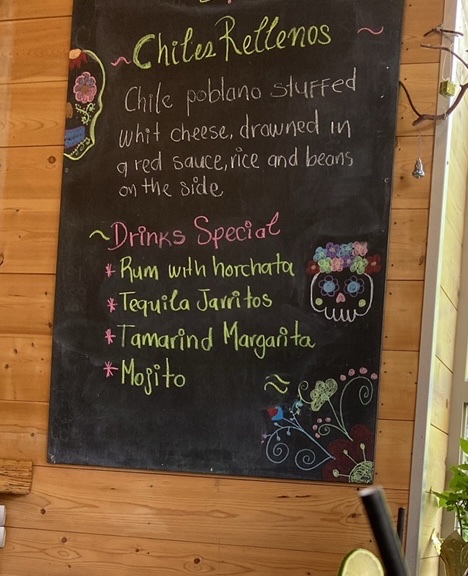 ~ Chiles Rellenos ~
Chile poblano stuffed
whit cheese, drowned in
a red sauce, rice and beans
on the side
~ Drinks Special
* Rum with horchata
* Tequila Jarritos
* Tamarind Margarita
* Mojito